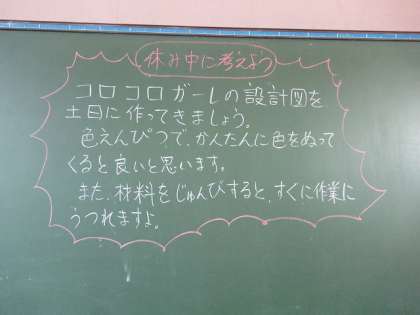 休み中に考えよう
コロコロガーレの設計図を
土日に作ってきましょう。
色えんぴつで、かんたんに色をぬって
くると良いと思います。
また、材料をじゅんびすると、すぐに作業に
うつれますよ。